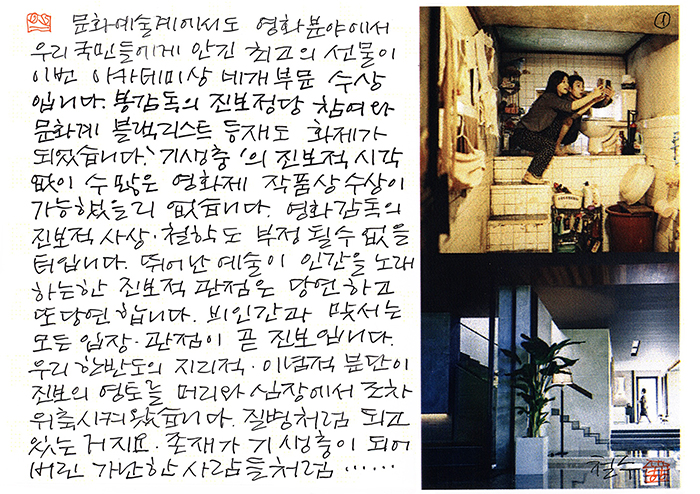 문화예술계에서도 영화분야에서
우리국민들에게 안긴 최고의 선물이
이번 아카데미상 네개부문 수상
입니다. 봉감독의 진보정당 참여와
문화계 블랙리스트 등재도 화제가
되었습니다. '기생충'의 진보적 시각
없이 수많은 영화제 작품상수상이
가능했을리 없습니다. 영화감독의
진보적 사상·철학도 부정 될수 없을
터입니다. 뛰어난 예술이 인간을 노래
하는한 진보적 관점은 당연하고
또당연 합니다. 비인간과 맞서는
모든 입장·관점이 곧 진보입니다.
우리 한반도의 지리적·이념적 분단이
진보의 영토를 머리와 심장에서 조차
위축시켜왔습니다. 질병처럼 되고
있는 거지요. 존재가 기생충이 되어
버린 가난한 사람들처럼 ......
①
철수